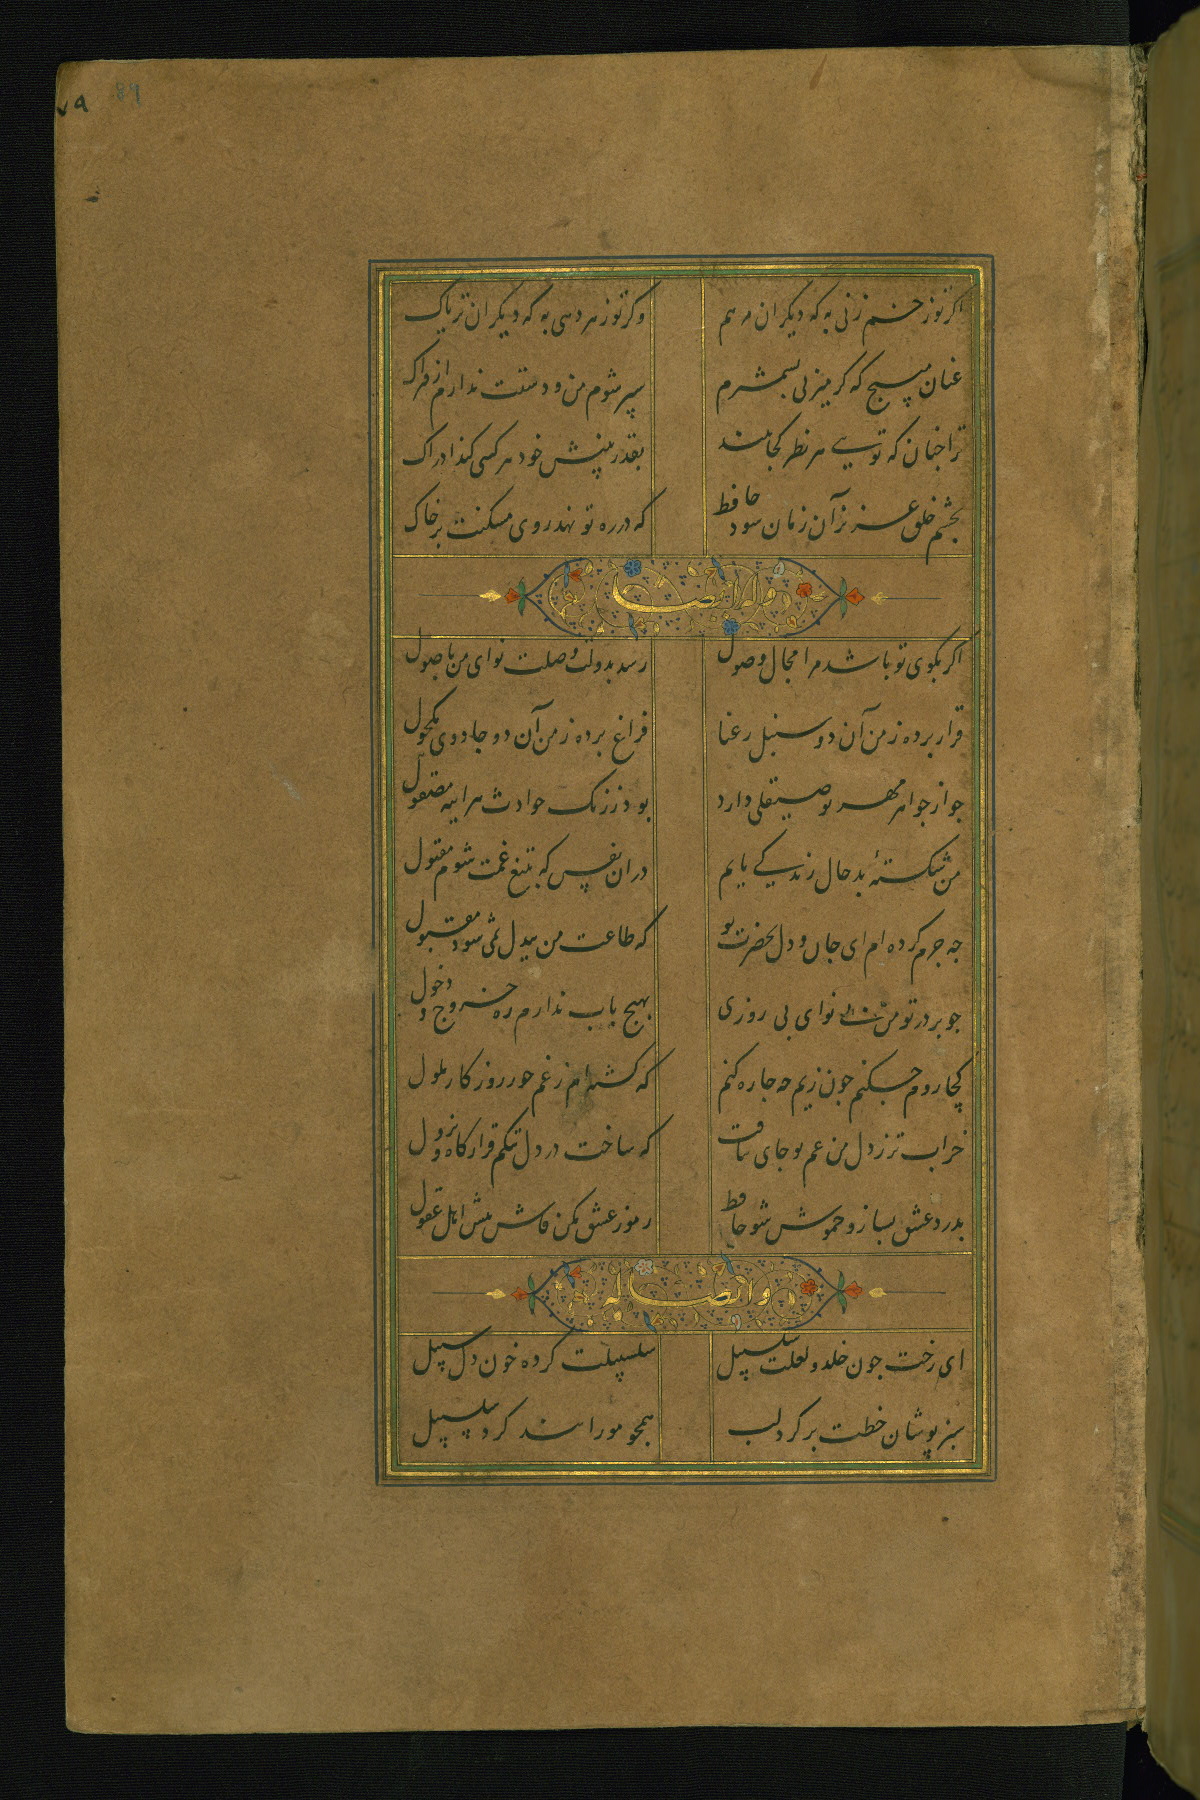 ٧٩ 89
اکر تو زخم زنی به که دیکران مرهم وکر تو زهر دهی به که دیکران تریاک
عنان مپیچ که کر میزنی بشمشیرم سپر شوم من و دستت ندارم از فتراک
ترا جنان که تویی هر نظر کجا بیند بقدر بینش خود هر کسی کند ادراک
بجشم خلق عزیز آن زمان شود حافظ که در ره تو نهد روی مسکنت بر خاک
وله ایضا
اکر بکوی تو باشد مرا مجال وصول رسد بدولت وصلت نوای من باصول
قرار برده ز من آن دو سنبل رعنا فراغ برده ز من آن دو جادوی مکحول
جو از جواهر مهر تو صیقلی دارد بود ز زنک حوادث هراینه مصقول
من شکستهٔ بدحال زندکی یابم دران نفس که بتیغ غمت شوم مقتول
جه جرم کرده ام ای جان و دل بحضرت تو که طاعت من بیدل نمی شود مقبول
جو بر در تو من بی نوای بی روزی بهیج باب ندارم ره خروج و دخول
کجا روم جکنم جون زیم جه جاره کنم که کشته ام ز غم جور روزکار ملول
خراب تر ز دل من غم تو جای نیافت که ساخت در دل تنکم قرارکاه نزول
بدرد عشق بساز و خموش شو حافظ رموز عشق مکن فاش پیش اهل عقول
وایضا له
ای رخت جون خلد و لعلت سلسبیل سلسبیلت کرده خون دل سبیل
سبزپوشان خطت بر کرد لب همجو مورانند کرد سلسبیل